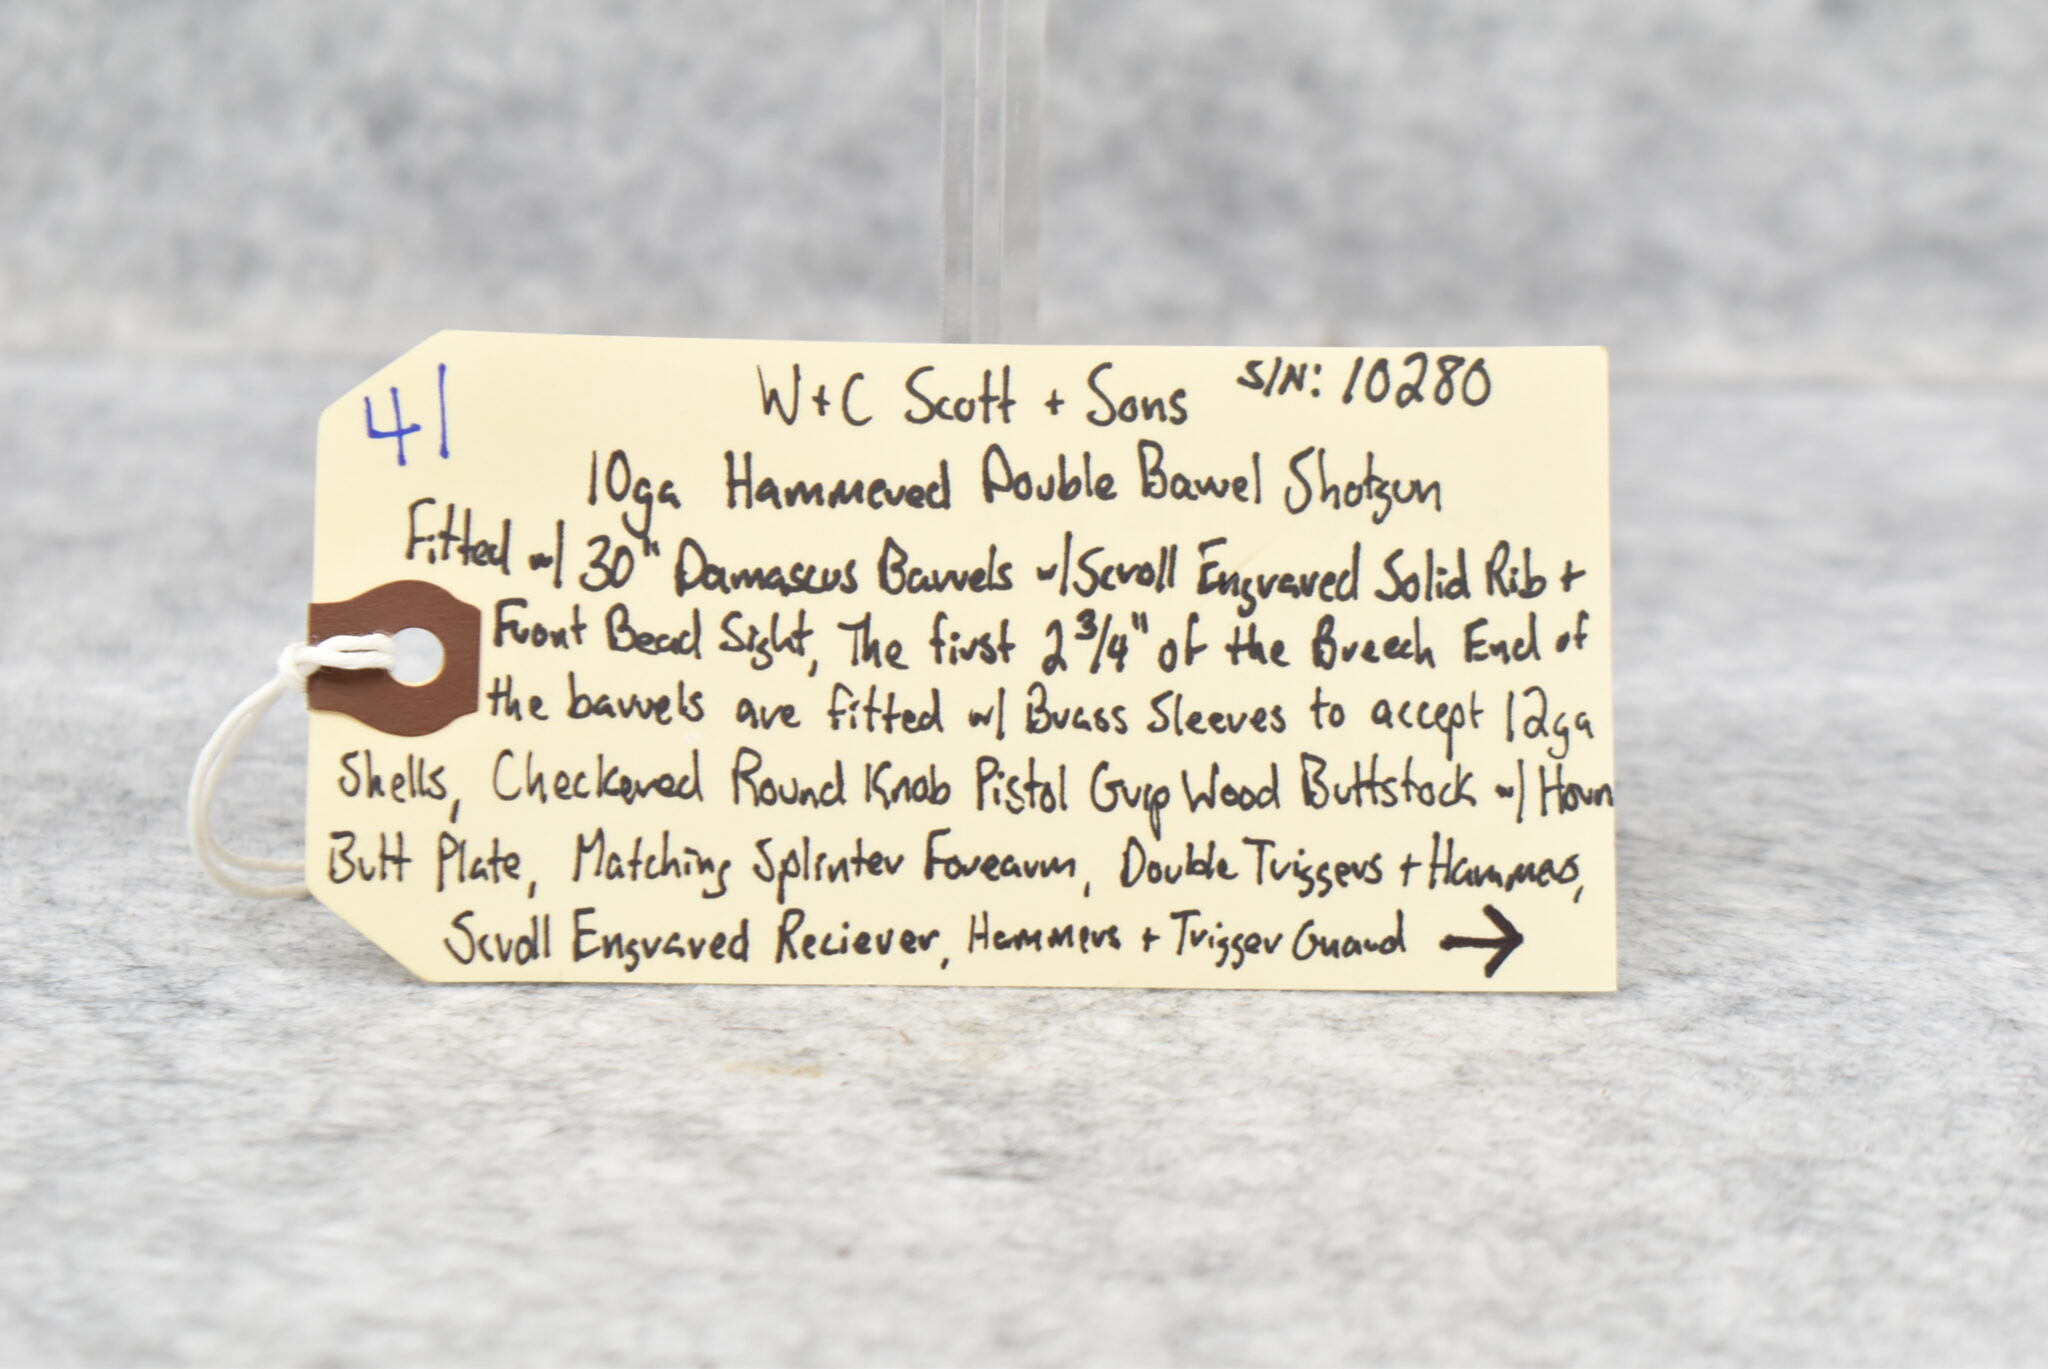 41
W+C Scott + Sons S/N: 10280
10ga Hammered Double Barrel Shotgun
Fitted w/ 30" Damascus Barrels w/ Scroll Engraved Solid Rib +
Front Bead Sight, The first 2 3/4" of the Breech End of
the barrels are fitted w/ Brass Sleeves to accept 12ga
Shells, Checkered Round Knob Pistol Grip Wood Buttstock w/ Horn
Butt Plate, Matching Splinter Forearm, Double Triggers + Hammers,
Scroll Engraved Reciever, Hammers + Trigger Guard →